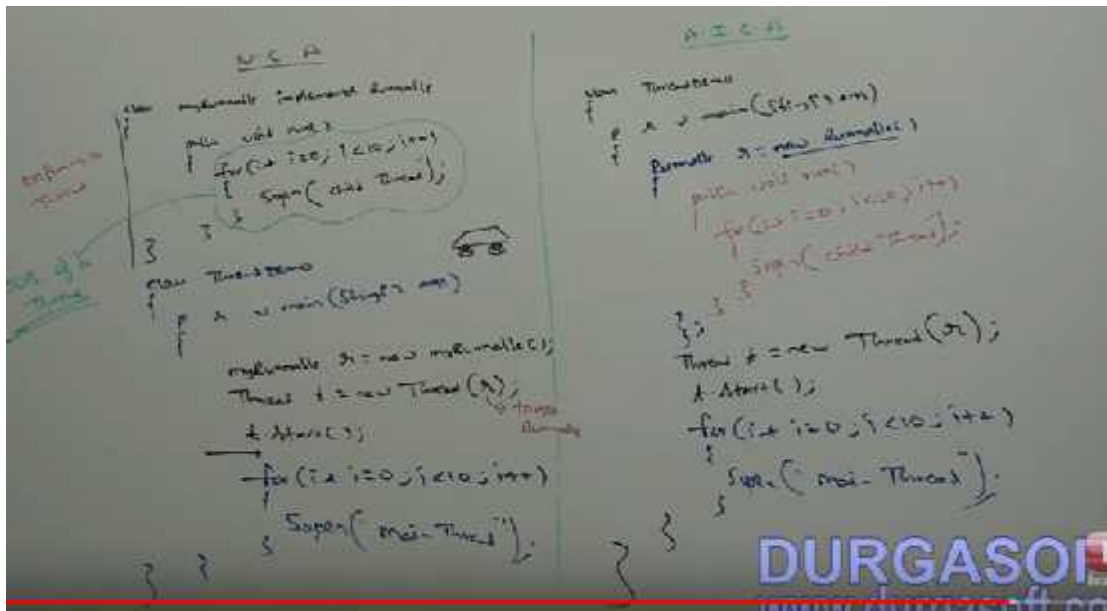 W C A
class myRunnable implements Runnable
{
public void run()
{
for(int i=0; i<10; i++)
{
Sopln("child Thread");
}
}
}
Job of a Thread
class ThreadDemo
{
p s v main(String[] args)
{
myRunnable r = new myRunnable();
Thread t = new Thread(r);
target Runnable
t.start();
for(int i=0; i<10; i++)
{
Sopln("main Thread");
}
}
}
A.I.C.A
class ThreadDemo
{
p s v main(String[] args)
{
Runnable r = new Runnable()
{
public void run()
for(int i=0; i<10; i++)
{
Sopln("child Thread");
}
}
};
Thread t = new Thread(r);
t.start();
for(int i=0; i<10; i++)
{
Sopln("main Thread");
}
}
}
DURGASOF